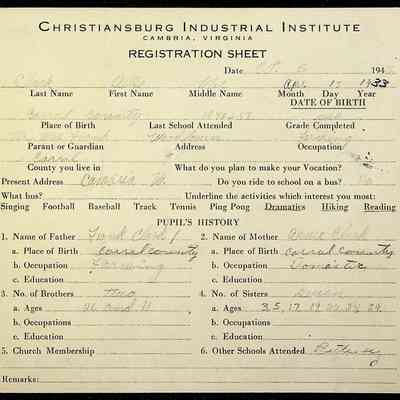 CHRISTIANSBURG INDUSTRIAL INSTITUTE
CAMBRIA, VIRGINIA
REGISTRATION SHEET
Date Oct. 6 194
Clark Apr. 13 1933
Last Name First Name Middle Name Month Day Year
DATE OF BIRTH
Carrol County
Place of Birth Last School Attended Grade Completed
Frank Farming
Parant or Guardian Address Occupation
Carrol
County you live in What do you plan to make your Vocation?
Present Address Cambria Va. Do you ride to school on a bus?
What bus? Underline the activities which interest you most:
Singing Football Baseball Track Tennis Ping Pong Dramatics Hiking Reading
PUPIL'S HISTORY
1. Name of Father Frank Clark 2. Name of Mother Clark
a. Place of Birth Carrol County a. Place of Birth Carrol County
b. Occupation Farming b. Occupation Domestic
c. Education c. Education
3. No. of Brothers Two 4. No. of Sisters Seven
a. Ages 21 and 11 a. Ages 35, 17, 19
b. Occupations b. Occupations
c. Education c. Education
5. Church Membership 6. Other Schools Attended
Remarks: